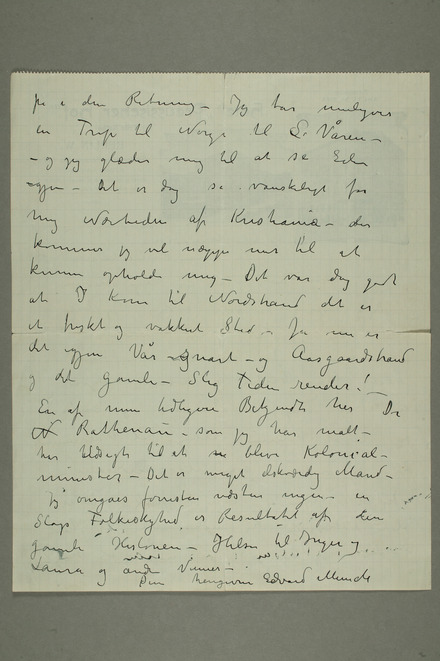 på i den Retning – Jeg tar muligens
en Trip til Norge til Våren –
– og jeg glæder mig til at se Eder
igjen – Det er dog så vanskeligt for
mig Nærheden af Kristiania – der
kommer jeg vel næppe mer til at
kunne opholde mig – Det var dog godt
at I kom til Nordstrand det er
et friskt og vakkert Sted – Ja nu er
det igjen Vår snart – og Aasgaardstrand
og det gamle – Slig Tiden render! –
En af mine tidligere Bekjendte her Dr
Rathenau – som jeg har malt –
har Udsigt til at blive Kolonial-
minister – Det er meget elskværdig Mand –
Jeg omgåes forresten næsten ingen – en
Slags Folkeskyhed er Resultatet af den
gamle Historien – Hilsen til Inger og
Laura og andre Venner –
Din hengivne Edvard Munch